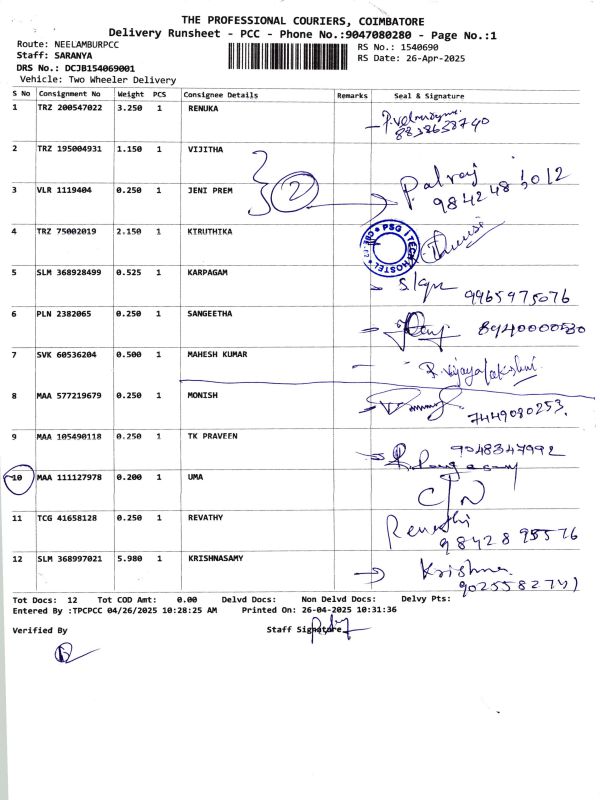 THE PROFESSIONAL COURIERS, COIMBATORE
Delivery Runsheet - PCC - Phone No.:9047080280 - Page No.:1
Route: NEELAMBURPCC
RS No.: 1540690
Staff: SARANYA
RS Date: 26-Apr-2025
DRS No.: DCJB154069001
Vehicle: Two Wheeler Delivery
S No Consignment No Weight PCS Consignee Details Remarks Seal & Signature
1 TRZ 200547022 3.250 1 RENUKA
8838638740
2 TRZ 195004931 1.150 1 VIJITHA
2
Palraj
3 VLR 1119404 0.250 1 JENI PREM
9842483012
4 TRZ 75002019 2.150 1 KIRUTHIKA
PSG iTECH HOSTEL
5 SLM 368928499 0.525 1 KARPAGAM
9965975076
6 PLN 2382065 0.250 1 SANGEETHA
8940000580
7 SVK 60536204 0.500 1 MAHESH KUMAR
R. Vijayalakshmi
8 MAA 577219679 0.250 1 MONISH
7449080253.
9 MAA 105490118 0.250 1 TK PRAVEEN
9048347992
10 MAA 111127978 0.200 1 UMA
11 TCG 41658128 0.250 1 REVATHY
Revathi
9842895576
12 SLM 368997021 5.980 1 KRISHNASAMY
Krishna
9025582741
Tot Docs: 12 Tot COD Amt: 0.00 Delvd Docs: Non Delvd Docs: Delvy Pts:
Entered By :TPCPCC 04/26/2025 10:28:25 AM Printed On: 26-04-2025 10:31:36
Verified By Staff Signature